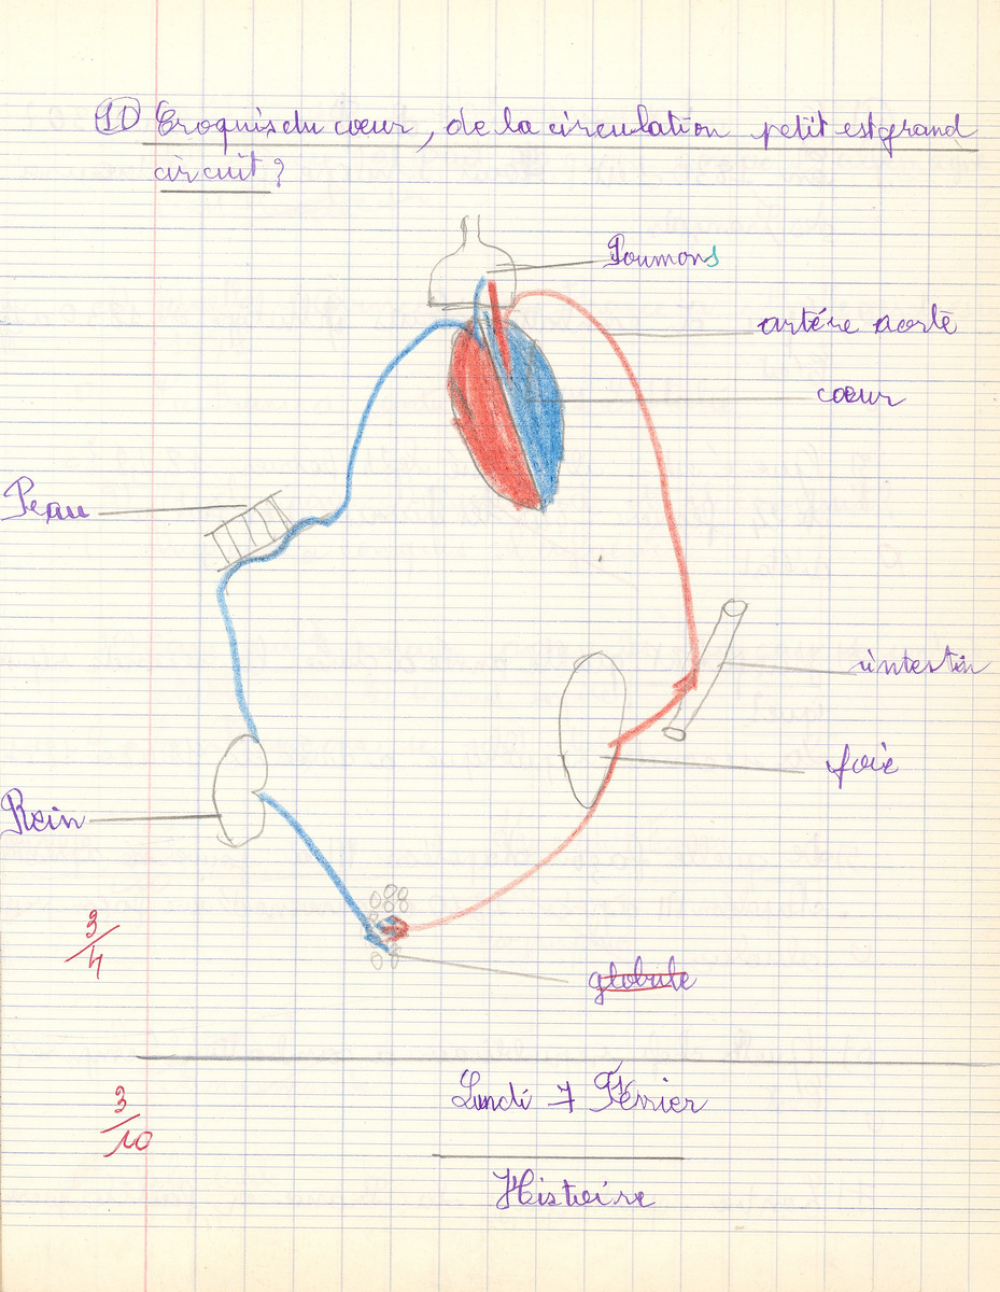 1) Croquis du coeur, de la circulation petit est grand
circuit ?
Poumons
artére aorte
coeur
Peau
intestin
foie
Rein
3/4
globule
Lundi 7 Février
3/10
Histoire